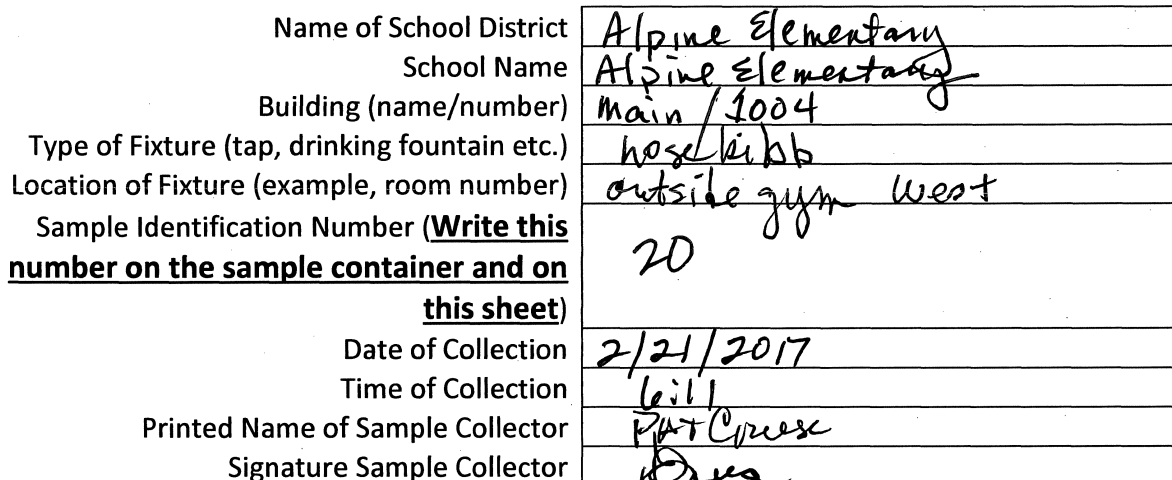 Name of School District Alpine Elementary
School Name Alpine Elementary
Building (name/number) main / 1004
Type of Fixture (tap, drinking fountain etc.) hose bibb
Location of Fixture (example, room number) outside gym West
Sample Identification Number (Write this
number on the sample container and on 20
this sheet)
Date of Collection 2/21/2017
Time of Collection 6:11
Printed Name of Sample Collector PAT
Signature Sample Collector